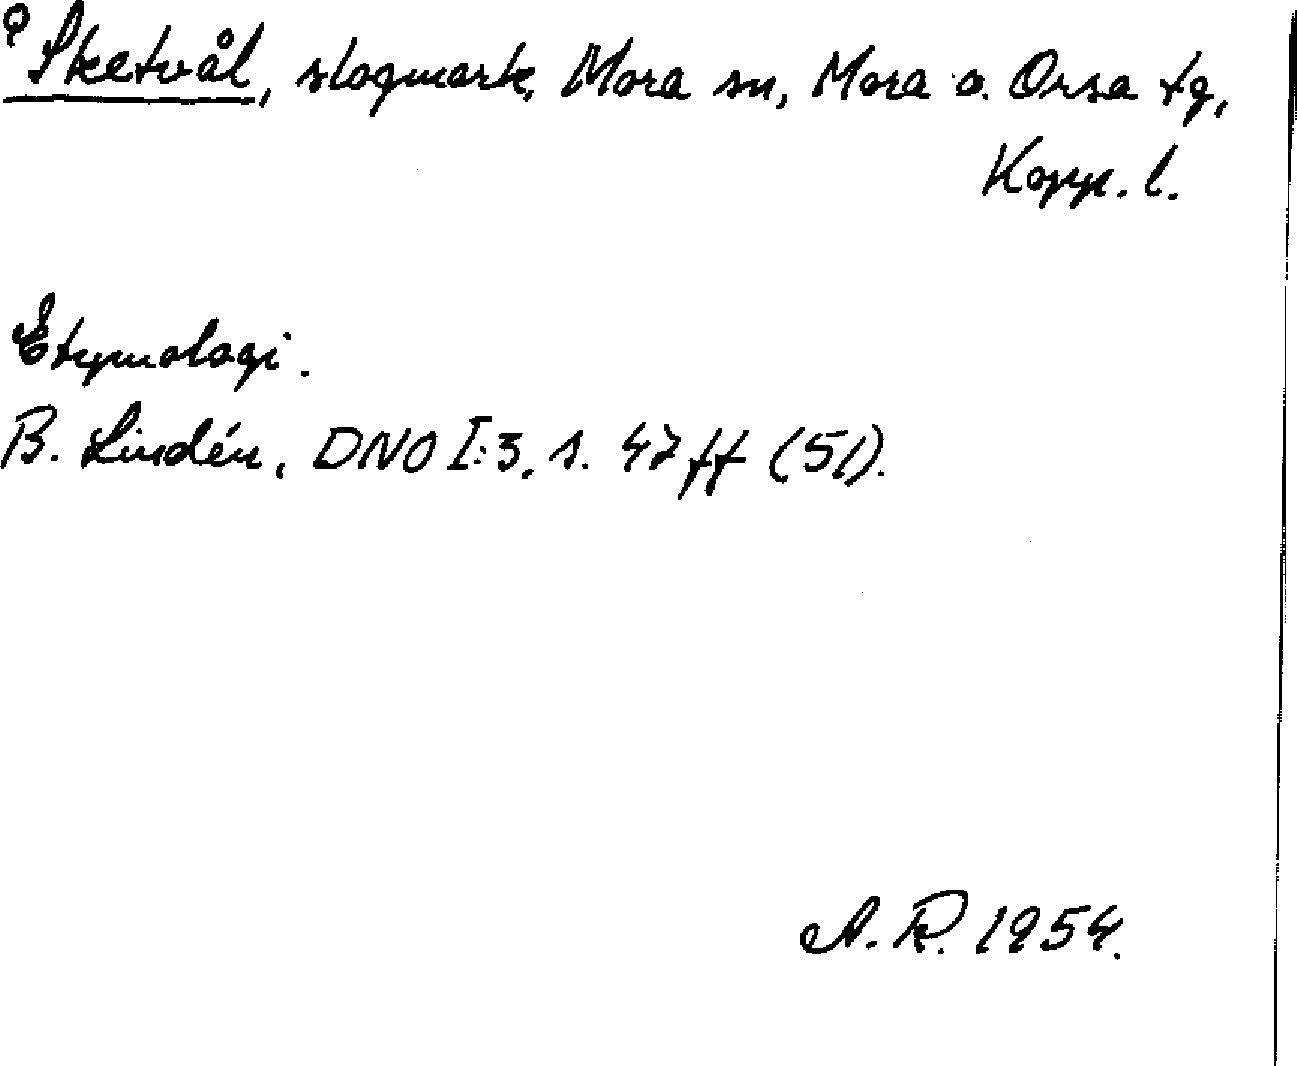 Sketvål, slogmark, Mora sn, Mora o. Orsa tg,
Kopp. l.
Etymologi.
B. Lindén, DNO I:3, s. 47 ff (51).
A. R. 1954.